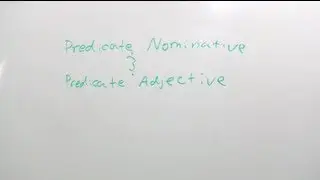 Predicate Nominative
&
Predicate Adjective